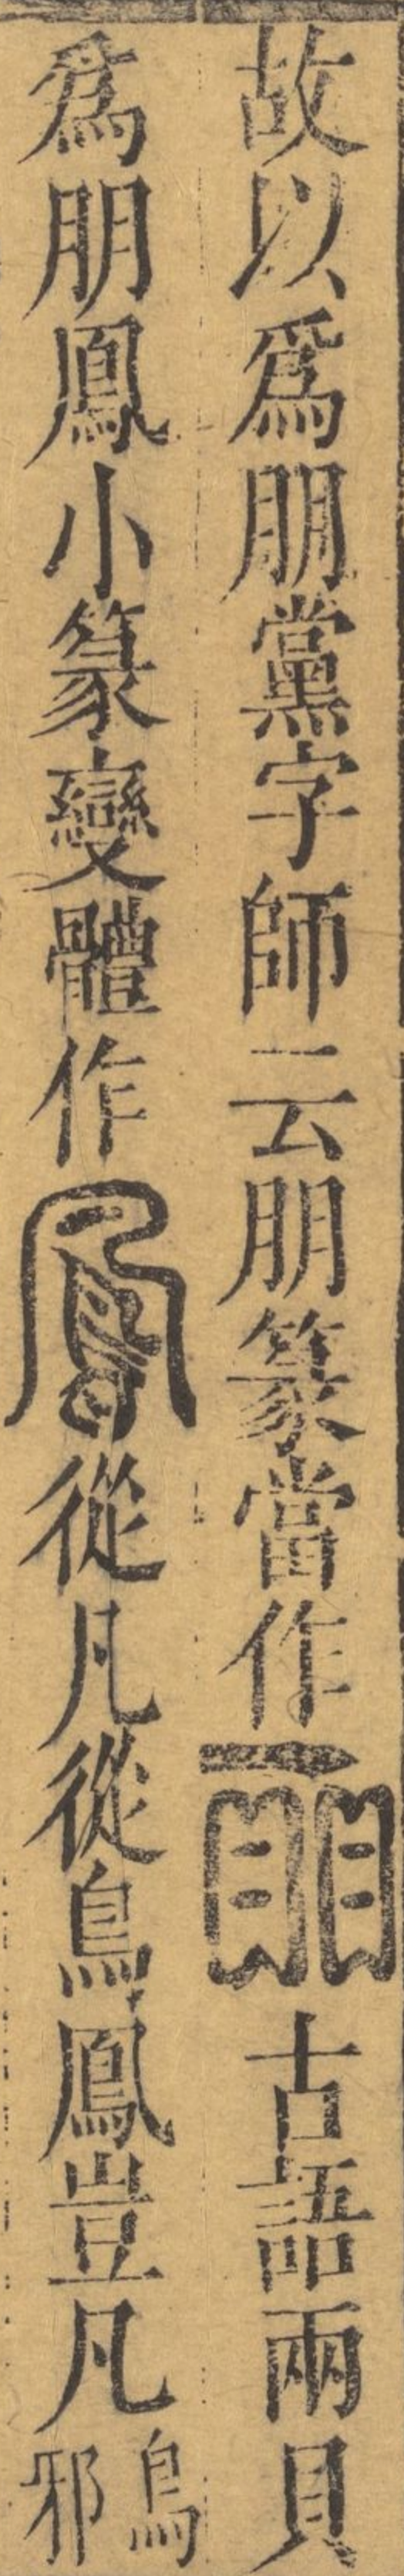 故以爲朋黨字師云朋篆當作古語兩貝
爲朋鳳小篆變體作鳳從凡從鳥鳳豈凡鳥邪